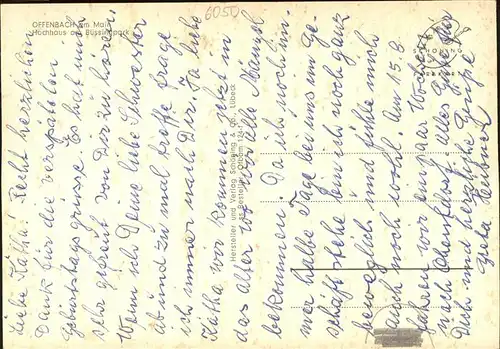 OFFENBACH am Main
Hochhaus am Büssingpark
6050
Liebe Kätha! Recht herzlichen
Dank für die verspäteten
Geburtstagsgrüsse. Es hat mich
sehr gefreut von Dir zu hören.
Wenn ich Deine liebe Schwester
ab und zu mal treffe frage
ich immer nach Dir. Ja liebe
Kätha wir kommen jetzt in
das Alter wo wir alle Mängel
bekommen. Da ich noch im-
mer halbe Tage bei uns im Ge-
schäft stehe bin ich noch ganz
beweglich und fühle mich
auch noch wohl. Am 15.8.
fahren wir ein paar Wochen
nach Oberndorf. Alles Gute für
Dich und herzliche Grüße
Greta
Hersteller und Verlag Schöning & Co., Lübeck
SCHÖNING